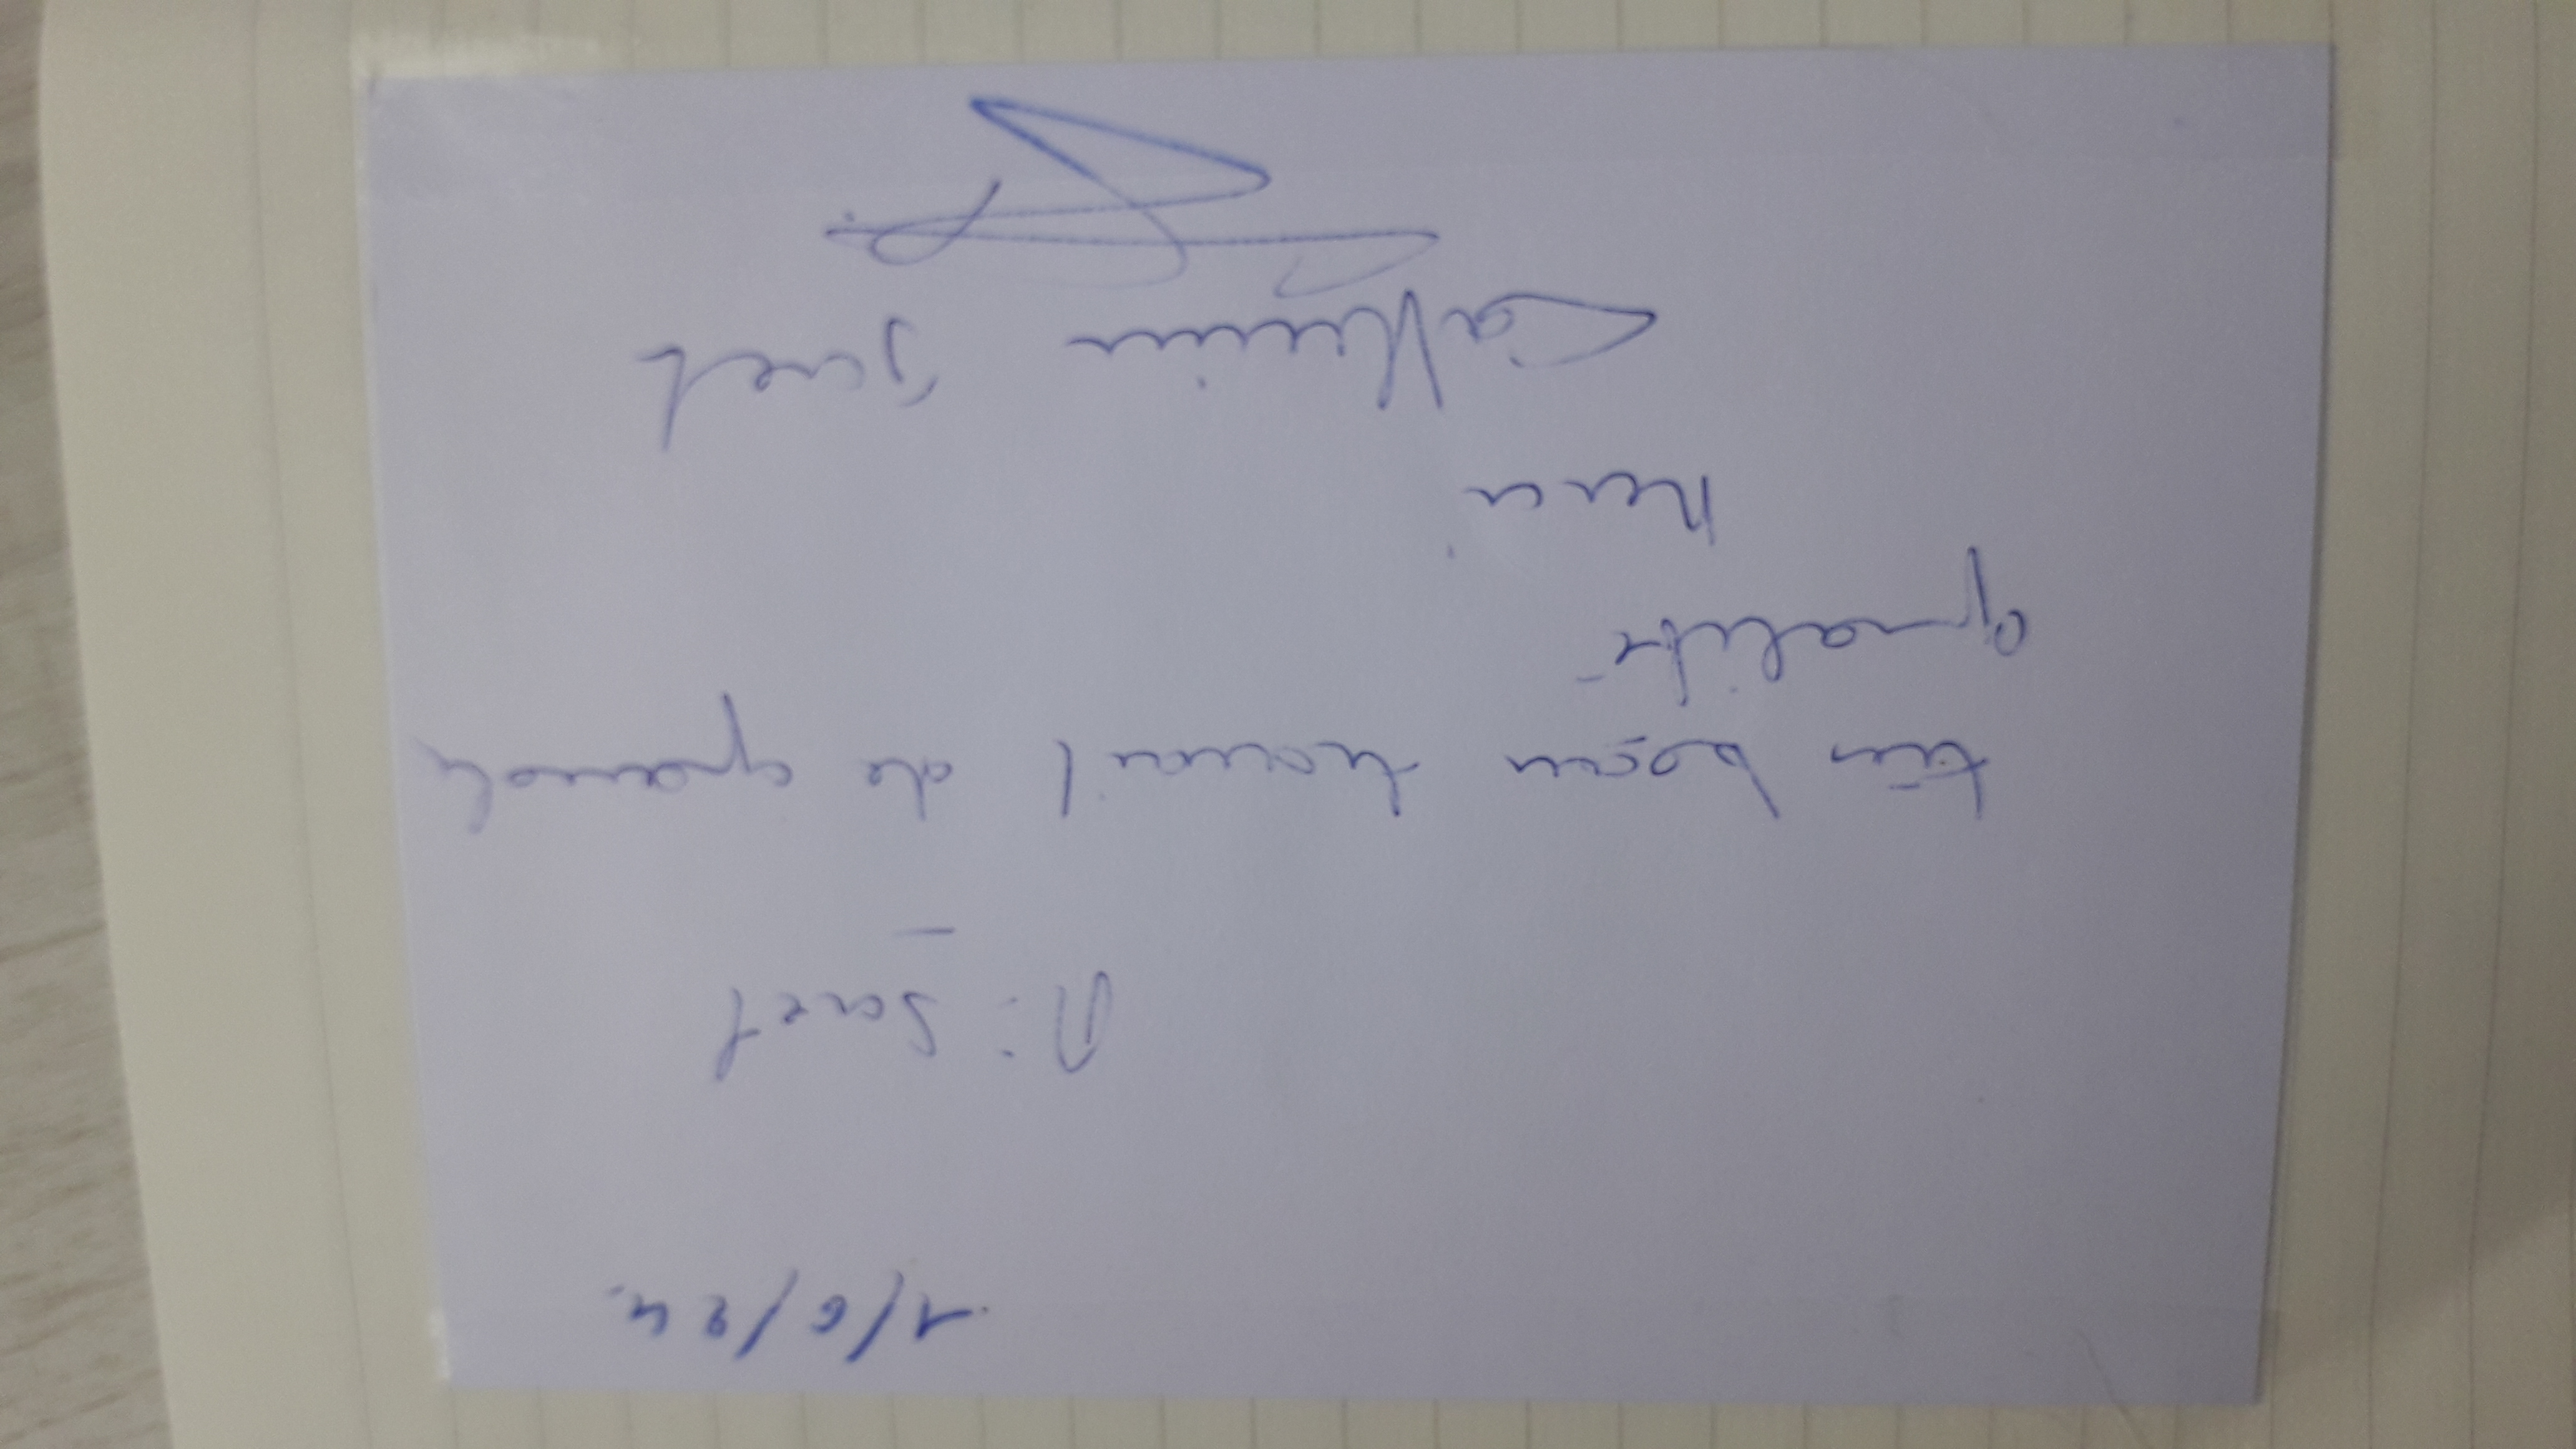 1/6/24.
très beau travail de grande
qualité
Merci
Catherine